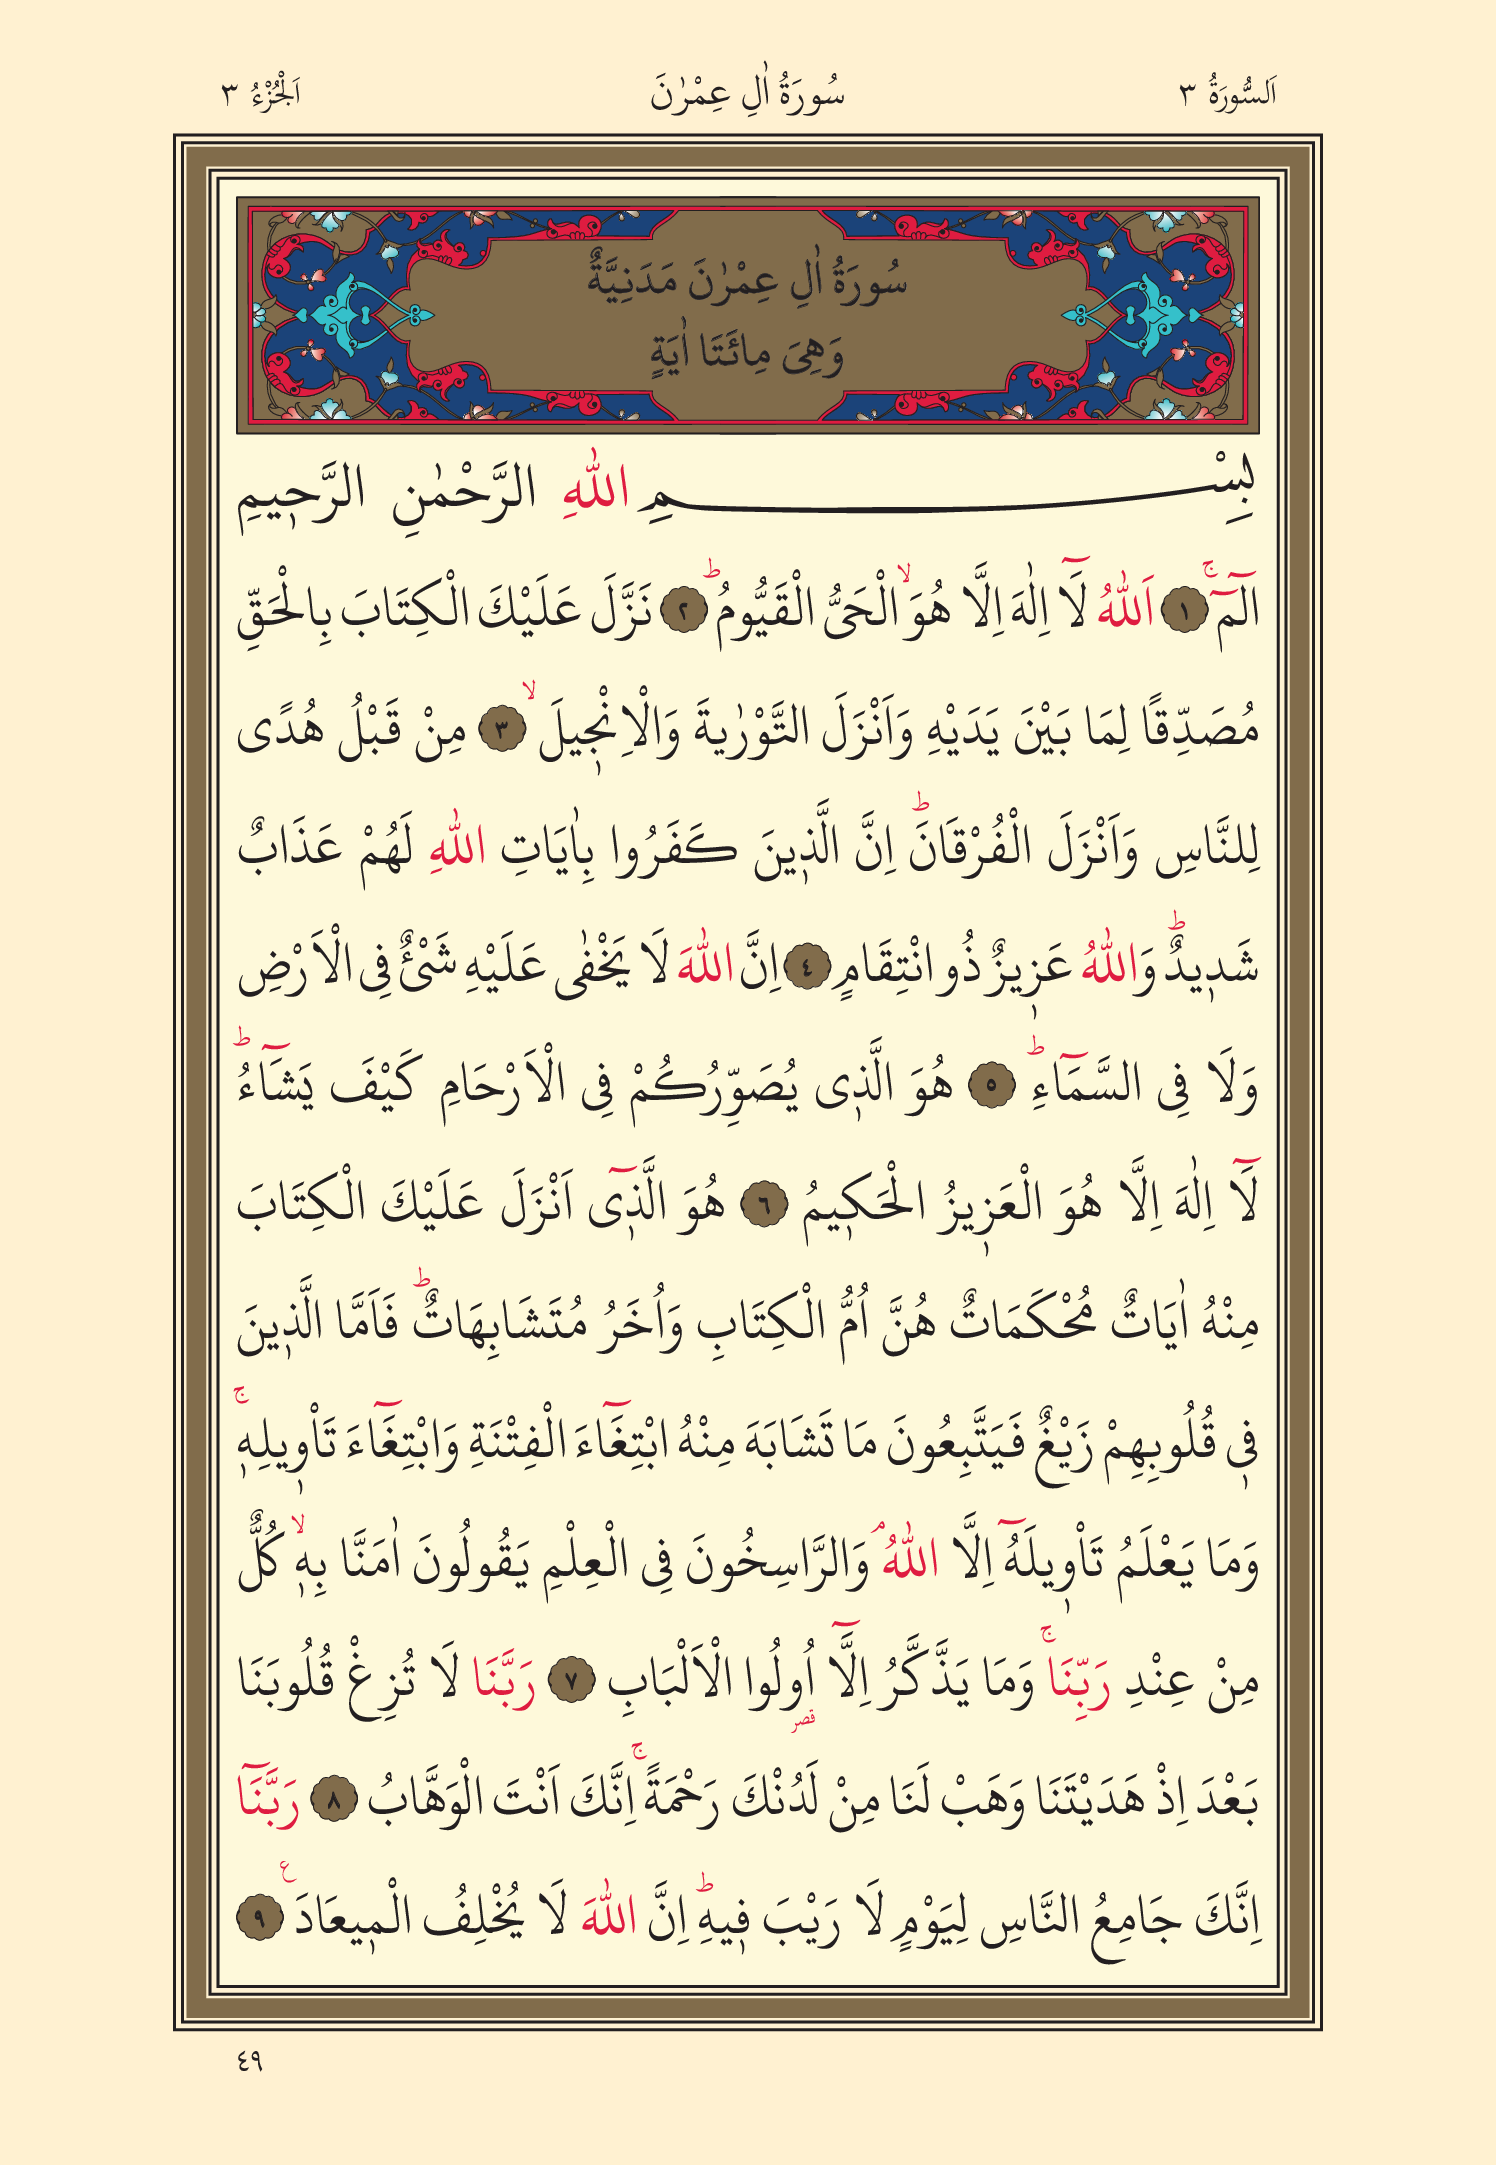 اَلسُّورَةُ ٣ سُورَةُ اٰلِ عِمْرٰنَ اَلْجُزْءُ ٣
سُورَةُ اٰلِ عِمْرٰنَ مَدَنِيَّةٌ
وَهِىَ مِائَتَا اٰيَةٍ
بِسْمِ اللّٰهِ الرَّحْمٰنِ الرَّحٖيمِ
الٓمٓۚ ﴿١﴾ اَللّٰهُ لَٓا اِلٰهَ اِلَّا هُوَۙ الْحَىُّ الْقَيُّومُؕ ﴿٢﴾ نَزَّلَ عَلَيْكَ الْكِتَابَ بِالْحَقِّ
مُصَدِّقًا لِمَا بَيْنَ يَدَيْهِ وَاَنْزَلَ التَّوْرٰيةَ وَالْاِنْجٖيلَۙ ﴿٣﴾ مِنْ قَبْلُ هُدًى
لِلنَّاسِ وَاَنْزَلَ الْفُرْقَانَؕ اِنَّ الَّذٖينَ كَفَرُوا بِاٰيَاتِ اللّٰهِ لَهُمْ عَذَابٌ
شَدٖيدٌؕ وَاللّٰهُ عَزٖيزٌ ذُو انْتِقَامٍ ﴿٤﴾ اِنَّ اللّٰهَ لَا يَخْفٰى عَلَيْهِ شَىْءٌ فِى الْاَرْضِ
وَلَا فِى السَّمَٓاءِؕ ﴿٥﴾ هُوَ الَّذٖى يُصَوِّرُكُمْ فِى الْاَرْحَامِ كَيْفَ يَشَٓاءُؕ
لَٓا اِلٰهَ اِلَّا هُوَ الْعَزٖيزُ الْحَكٖيمُ ﴿٦﴾ هُوَ الَّذٖٓى اَنْزَلَ عَلَيْكَ الْكِتَابَ
مِنْهُ اٰيَاتٌ مُحْكَمَاتٌ هُنَّ اُمُّ الْكِتَابِ وَاُخَرُ مُتَشَابِهَاتٌؕ فَاَمَّا الَّذٖينَ
فٖى قُلُوبِهِمْ زَيْغٌ فَيَتَّبِعُونَ مَا تَشَابَهَ مِنْهُ ابْتِغَٓاءَ الْفِتْنَةِ وَابْتِغَٓاءَ تَاْوٖيلِهٖۚ
وَمَا يَعْلَمُ تَاْوٖيلَهُٓ اِلَّا اللّٰهُۘ وَالرَّاسِخُونَ فِى الْعِلْمِ يَقُولُونَ اٰمَنَّا بِهٖۙ كُلٌّ
مِنْ عِنْدِ رَبِّنَاۚ وَمَا يَذَّكَّرُ اِلَّٓا اُولُوا الْاَلْبَابِ ﴿٧﴾ رَبَّنَا لَا تُزِغْ قُلُوبَنَا
قصر
بَعْدَ اِذْ هَدَيْتَنَا وَهَبْ لَنَا مِنْ لَدُنْكَ رَحْمَةًۚ اِنَّكَ اَنْتَ الْوَهَّابُ ﴿٨﴾ رَبَّنَٓا
اِنَّكَ جَامِعُ النَّاسِ لِيَوْمٍ لَا رَيْبَ فٖيهِؕ اِنَّ اللّٰهَ لَا يُخْلِفُ الْمٖيعَادَ ع ﴿٩﴾
٤٩